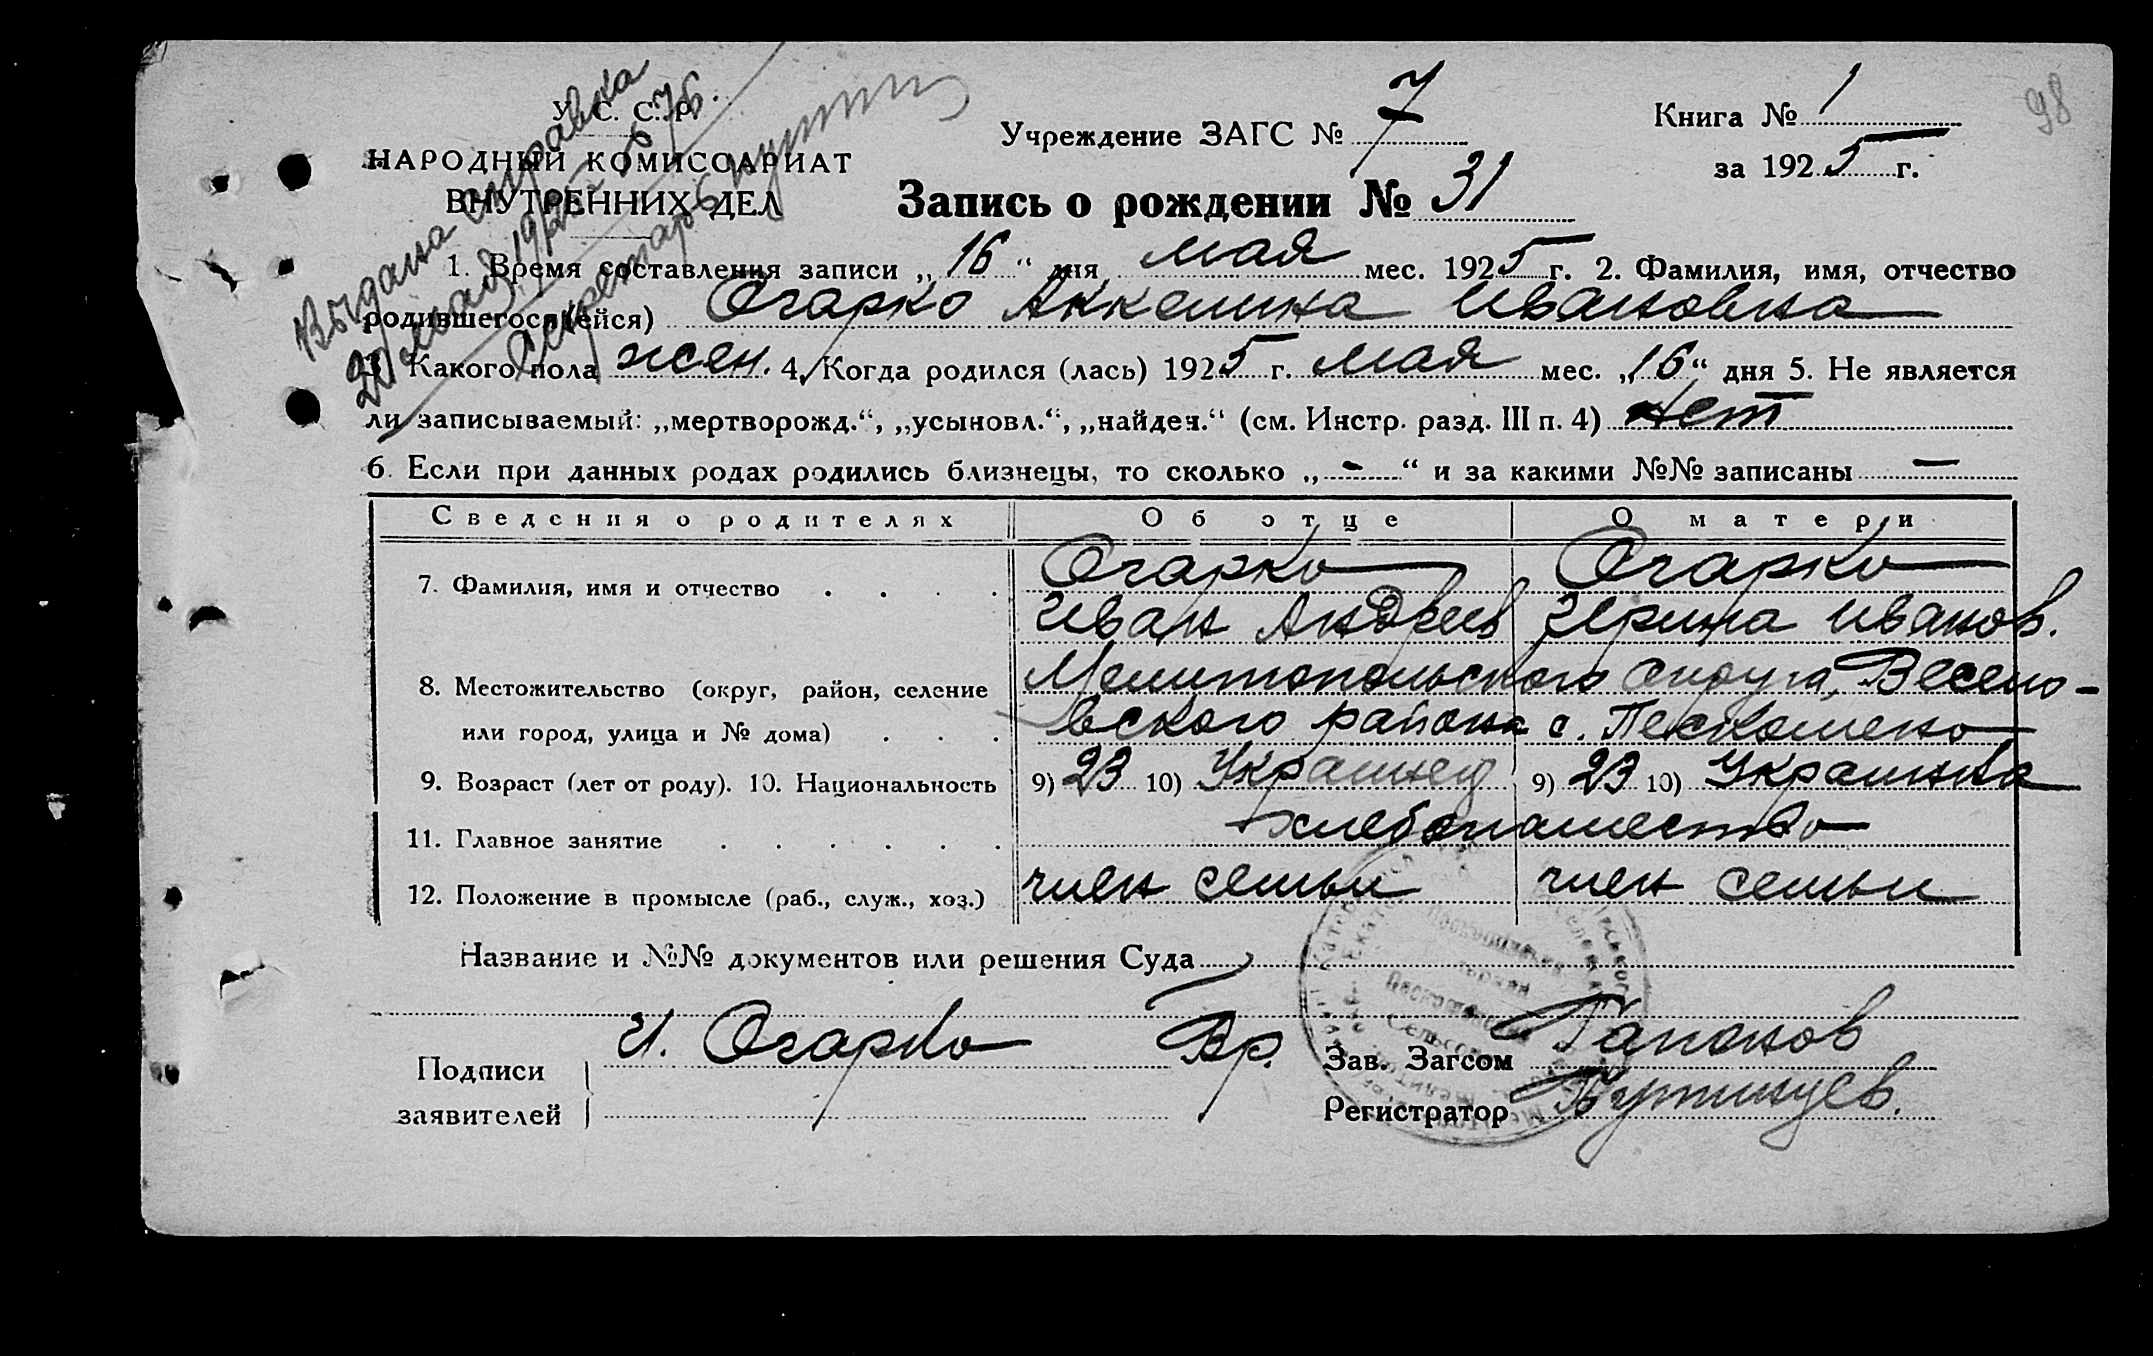 98
Выдана справка
У. С. С. Р.
НАРОДНЫЙ КОМИССАРИАТ
ВНУТРЕННИХ ДЕЛ
Секретарь
Учреждение ЗАГС № 7
Книга № 1
за 1925 г.
Запись о рождении № 31
1. Время составления записи „16“ дня мая мес. 1925 г. 2. Фамилия, имя, отчество
родившегося (ейся) Огарко Аккелина Ивановна
3. Какого пола жен. 4. Когда родился (лась) 1925 г. мая мес. „16“ дня 5. Не является
ли записываемый: „мертворожд.“, „усыновл.“, „найден.“ (см. Инстр. разд. III п. 4) нет
6. Если при данных родах родились близнецы, то сколько „-“ и за какими №№ записаны —
Сведения о родителях Об отце О матери
7. Фамилия, имя и отчество . . . . Огарко Огарко
Иван Андреев Ирина Иванов.
8. Местожительство (округ, район, селение Мелитопольского округа, Весело-
или город, улица и № дома) . . . вского района с.
9. Возраст (лет от роду). 10. Национальность 9) 23 10) Украинец 9) 23 10) Украинка
11. Главное занятие . . . . . . хлебопашество
12. Положение в промысле (раб., служ., хоз.) член семьи член семьи
Название и №№ документов или решения Суда
Подписи
заявителей
И. Огарко
Вр. Зав. Загсом Гапонов
Регистратор